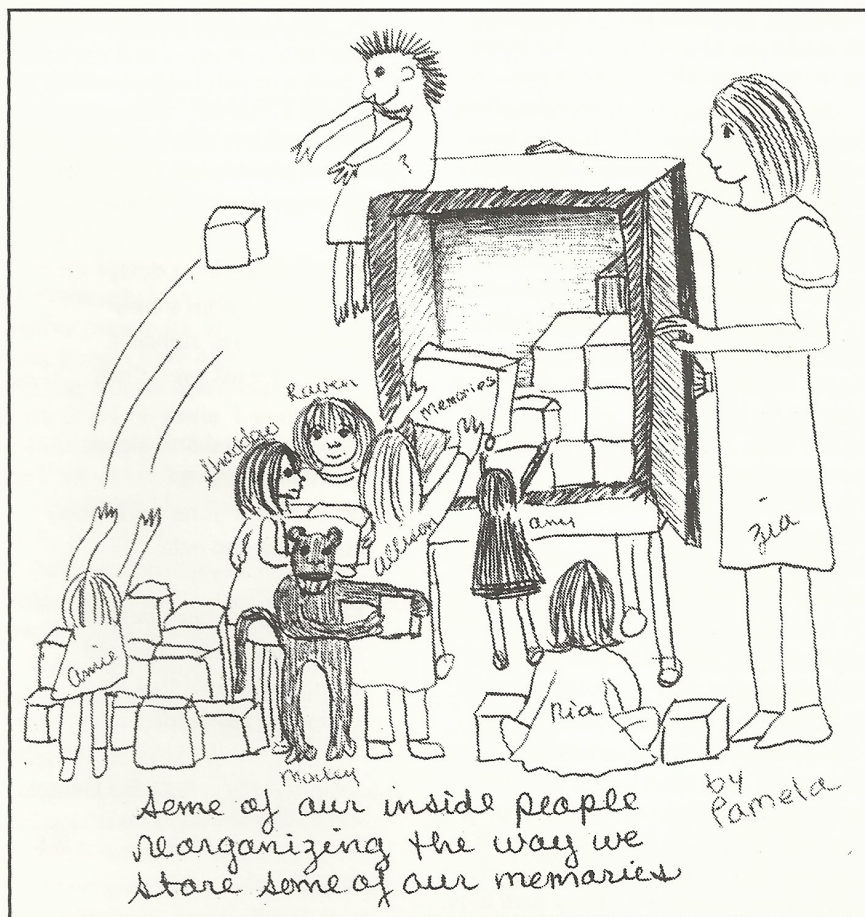 ?
Raven
Shaddow
memories
Allison
amy
zia
Amie
Ria
Marley
by
Pamela
Some of our inside people
reorganizing the way we
store some of our memories